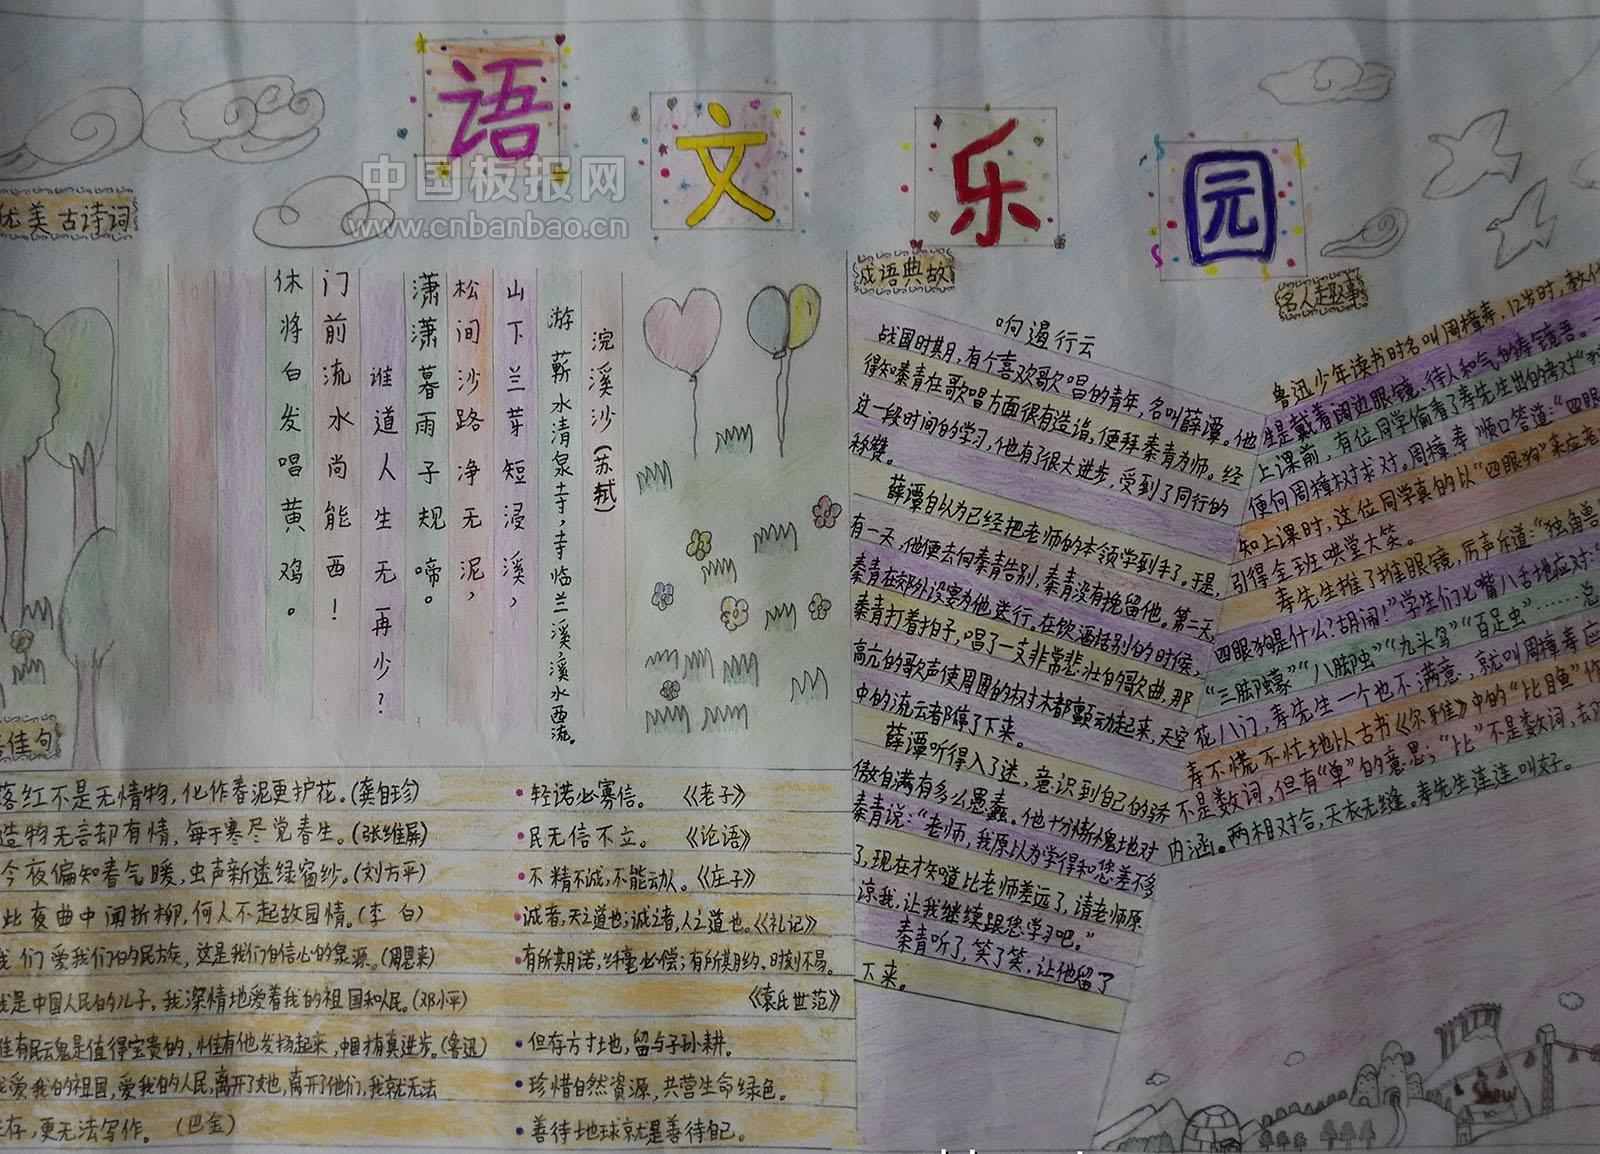 语文乐园
中国板报网
www.cnbanbao.cn
优美古诗词
浣溪沙(苏轼)
游蕲水清泉寺,寺临兰溪溪水西流。
山下兰芽短浸溪,
松间沙路净无泥,
潇潇暮雨子规啼。
谁道人生无再少?
门前流水尚能西!
休将白发唱黄鸡。
佳句
落红不是无情物,化作春泥更护花。(龚自珍)
造物无言却有情,每于寒尽觉春生。(张维屏)
今夜偏知春气暖,虫声新透绿窗纱。(刘方平)
此夜曲中闻折柳,何人不起故园情。(李白)
我们爱我们的民族,这是我们自信心的泉源。(周恩来)
我是中国人民的儿子,我深情地爱着我的祖国和人民。(邓小平)
惟有民云鬼是值得宝贵的,惟有他发扬起来,中国才有真进步。(鲁迅)
我爱我的祖国,爱我的人民,离开了她,离开了他们,我就无法
生存,更无法写作。(巴金)
轻诺必寡信。《老子》
民无信不立。《论语》
不精不诚,不能动人。《庄子》
诚者,天之道也;诚之者,人之道也。《礼记》
有所期诺,纤毫必偿;有所期约,时刻不易。
《袁氏世范》
但存方寸地,留与子孙耕。
珍惜自然资源,共营生命绿色。
善待地球就是善待自己。
成语典故
响遏行云
战国时期,有个喜欢歌唱的青年,名叫薛谭。他
得知秦青在歌唱方面很有造诣,便拜秦青为师。经
过一段时间的学习,他有了很大进步,受到了同行的
称赞。
薛谭自以为已经把老师的本领学到手了。于是,
有一天,他便去向秦青告别,秦青没有挽留他。第二天,
秦青在郊外设宴为他送行。在饮酒话别的时候,
秦青打着拍子,唱了一支非常悲壮的歌曲,那
高亢的歌声使周围的树木都颤动起来,天空
中的流云都停了下来。
薛谭听得入了迷,意识到自己的骄
傲自满有多么愚蠢。他十分惭愧地对
秦青说:“老师,我原以为学得和您差不多
了,现在才知道比老师差远了,请老师原
谅我,让我继续跟您学习吧。”
秦青听了,笑了笑,让他留了
下来。
名人趣事
鲁迅少年读书时名叫周樟寿,12岁时,教他
生是戴着阔边眼镜、待人和气的寿镜吾。一
上课前,有位同学偷看了寿先生出的考对“独
便向周樟树求对。周樟寿顺口答道:“四眼
知上课时,这位同学真的以“四眼狗”来应老
引得全班哄堂大笑。
寿先生推了推眼镜,厉声斥道:“独角兽
四眼狗是什么?胡闹!”学生们七嘴八舌地应对:“
“三脚蟾”“八脚虫”“九头鸟”“百足虫”……总
花八门,寿先生一个也不满意,就叫周樟寿应
寿不慌不忙地以古书《尔雅》中的“比目鱼”作
不是数词,但有“单”的意思;“比”不是数词,去
内涵。两相对合,天衣无缝。寿先生连连叫好。
Show